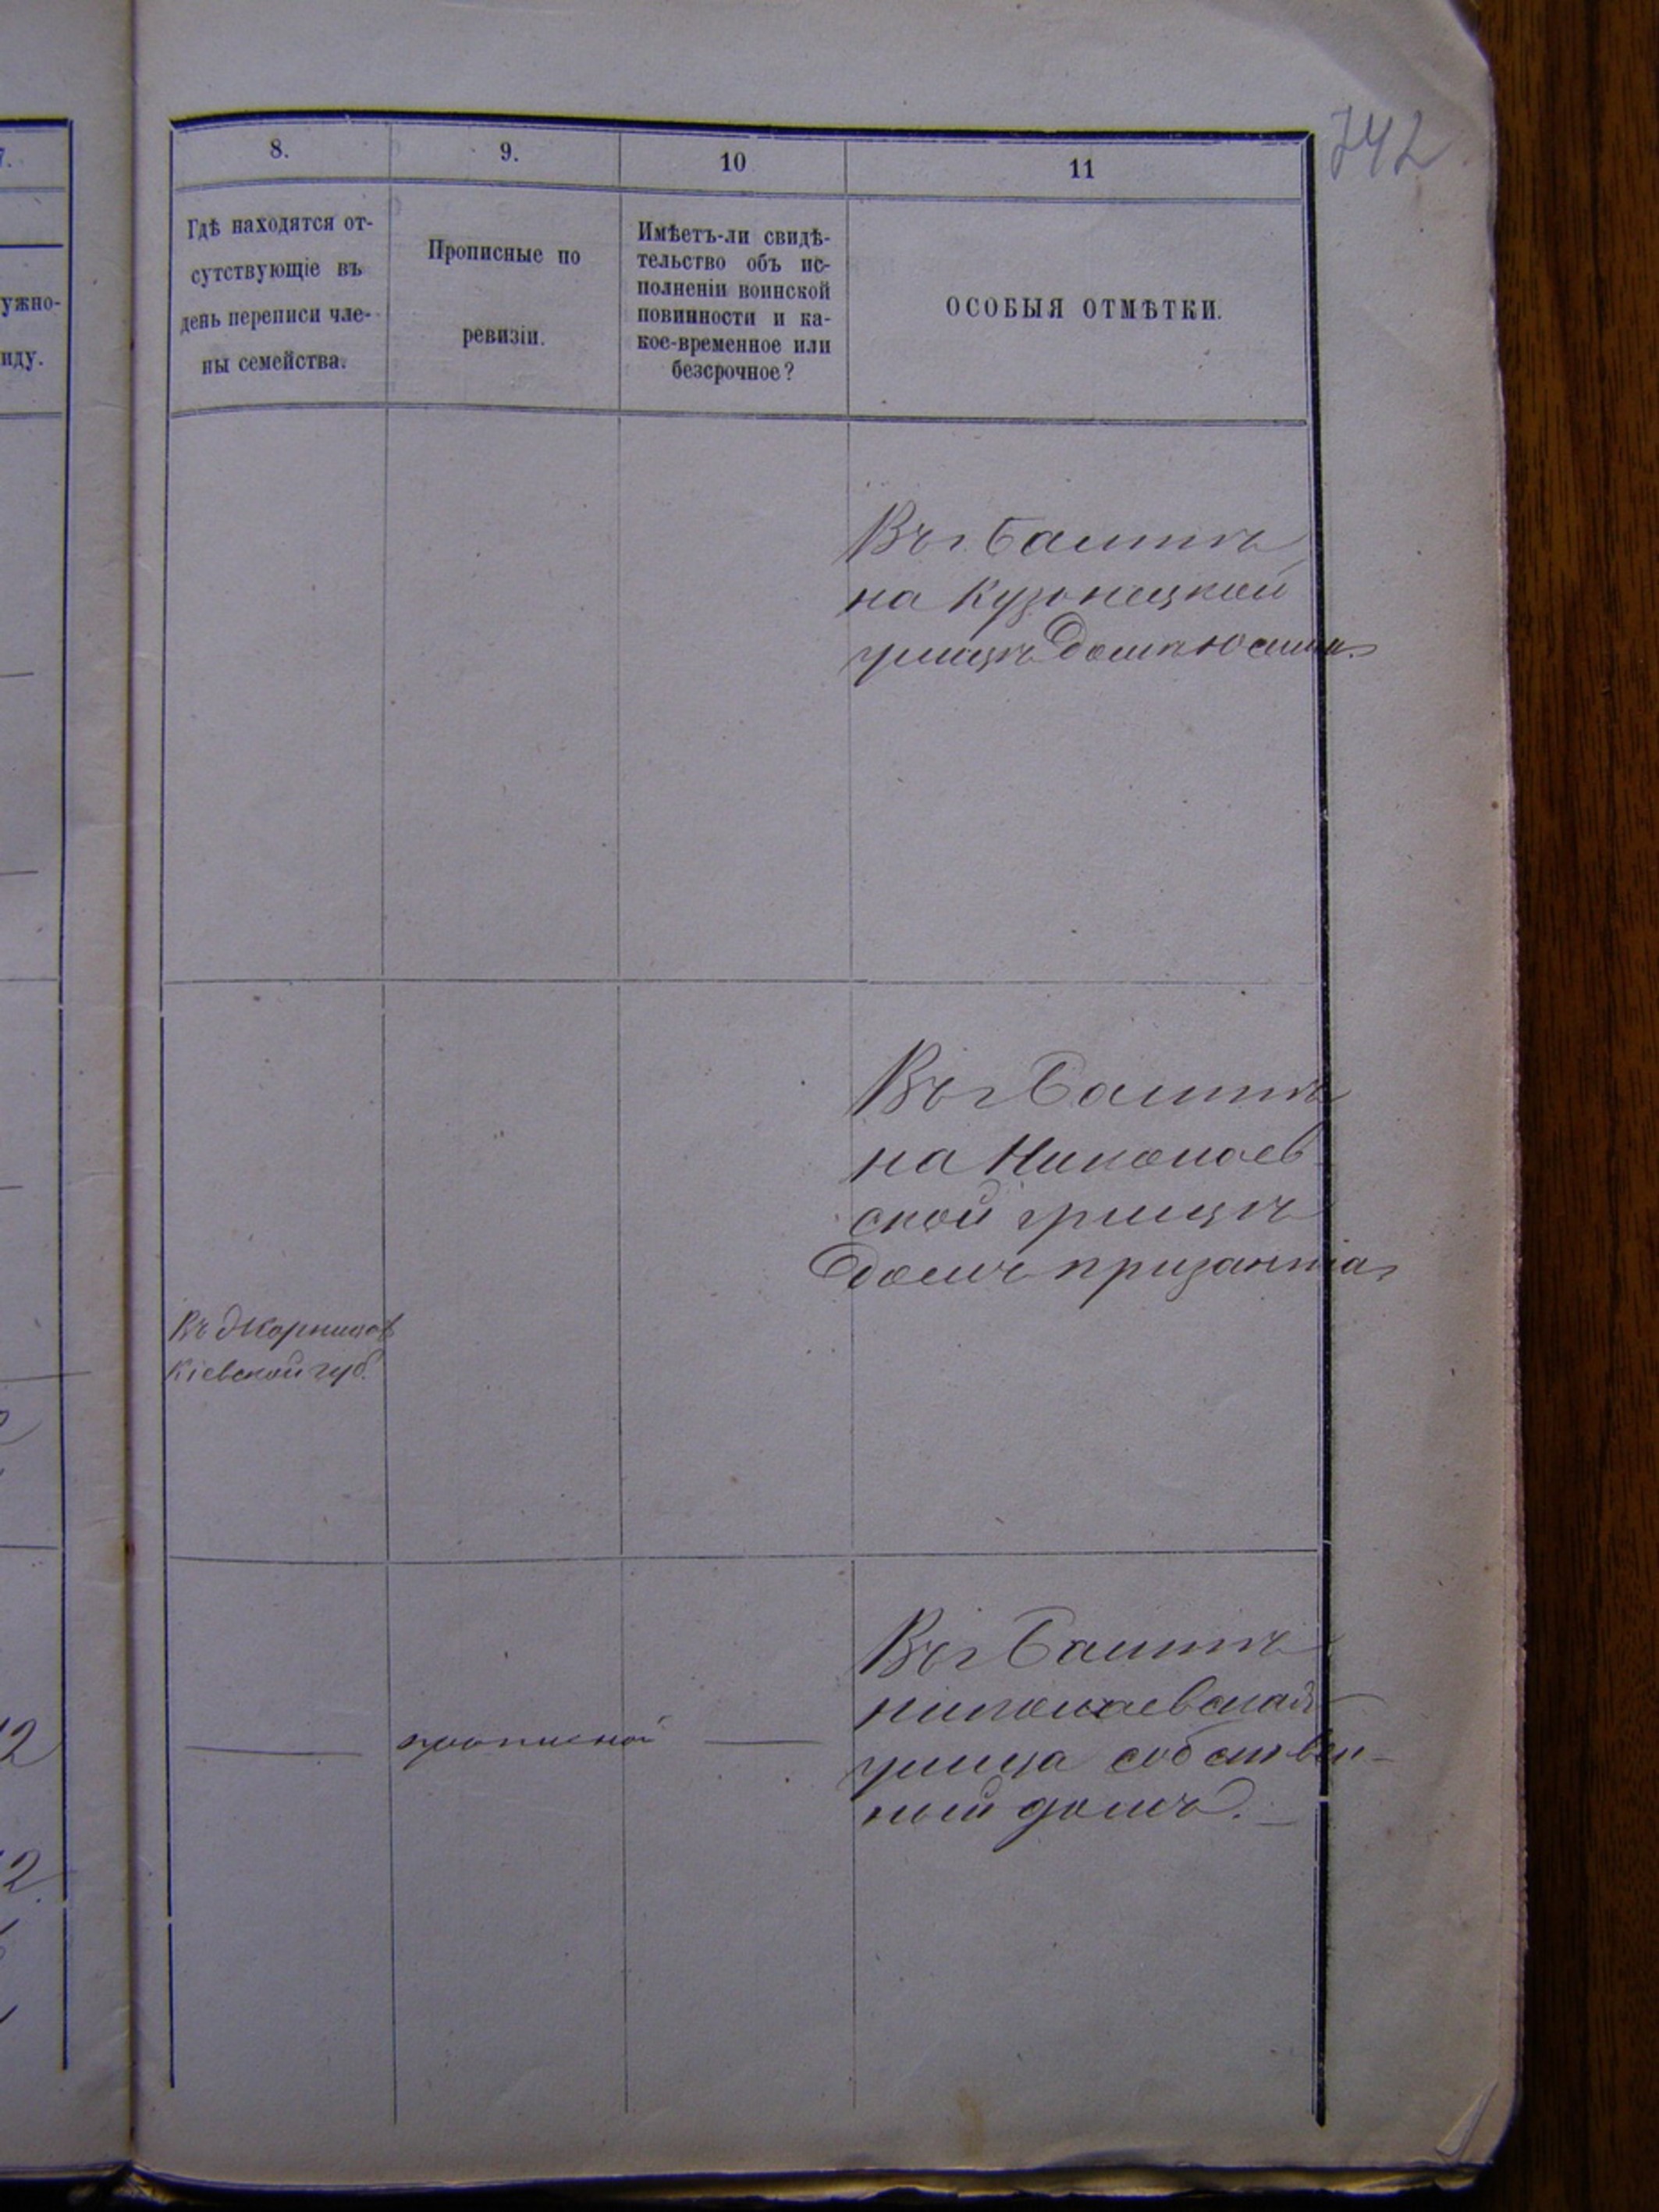 742
7.
8.
9.
10
11
ужно-
иду.
Гдѣ находятся от-
сутствующіе въ
день переписи чле-
ны семейства.
Прописные по
ревизіи.
Имѣетъ-ли свидѣ-
тельство объ ис-
полненіи воинской
повинности и ка-
кое-временное или
безсрочное?
ОСОБЫЯ ОТМѢТКИ.
Въ г. Балтѣ
на Кузнецкой
улицѣ домъ
Въ г Балтѣ
на Николаев
ской улицѣ
домъ
Въ д
Кіевской губ.
прописной
Въ г Балтѣ
николаевская
улица собствен-
ный домъ.